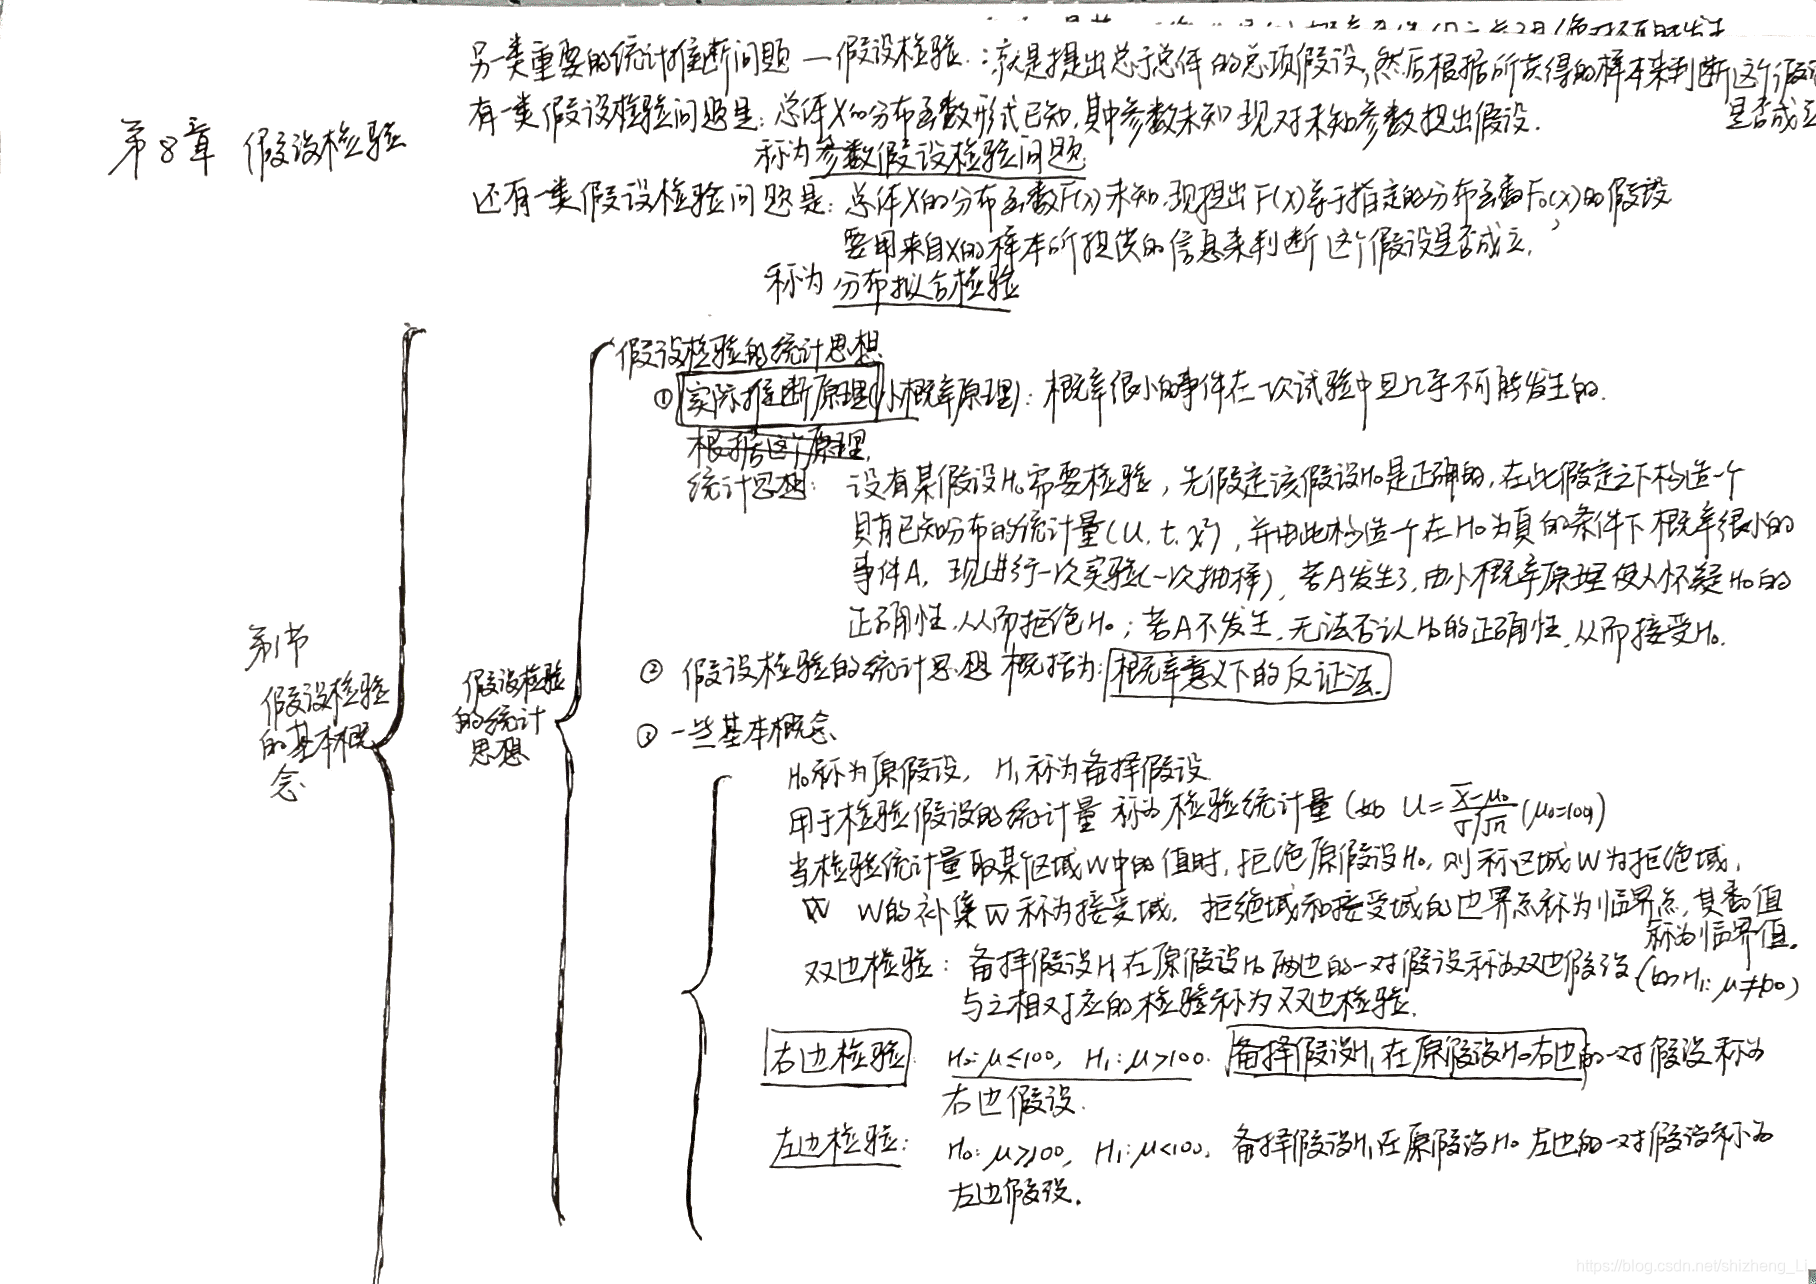 另一类重要的统计推断问题 — 假设检验：就是提出总于总体的总项假设，然后根据所获得的样本来判断这个假设
是否成立
第8章 假设检验
有一类假设检验问题是：总体X的分布函数形式已知，其中参数未知 现对未知参数提出假设.
称为参数假设检验问题
还有一类假设检验问题是：总体X的分布函数F(x)未知.现提出F(x)等于指定的分布函数F₀(x)的假设，
要用来自X的样本所提供的信息来判断这个假设是否成立.
称为分布拟合检验
假设检验的统计思想
① 实际推断原理(小概率原理)：概率很小的事件在一次试验中且几乎不可能发生的.
根据这个原理.
统计思想： 设有某假设H₀需要检验，先假定该假设H₀是正确的，在此假定之下构造一个
具有已知分布的统计量(U, t, χ²)，并由此构造一个在H₀为真的条件下概率很小的
事件A，现进行一次实验(一次抽样)，若A发生了，由小概率原理使人怀疑H₀的
正确性，从从而拒绝H₀；若A不发生，无法否认H₀的正确性，从而接受H₀.
第1节
假设检验
的基本概
念
假设检验
的统计
思想
② 假设检验的统计思想 概括为：概率意义下的反证法.
③ 一些基本概念
H₀称为原假设， H₁称为备择假设.
用于检验假设的统计量 称为检验统计量 (如 U = (X̄-μ₀)/(σ/√n) (μ₀=100)
当检验统计量取某个区域W中的值时，拒绝原假设H₀，则称区域W为拒绝域，
W W的补集W̄称为接受域. 拒绝域和接受域的边界点称为临界点，其数值
称为临界值.
双边检验： 备择假设H₁在原假设H₀两边的一对假设称为双边假设 (如H₁: μ≠100)
与之相对应的检验称为双边检验.
右边检验: H₀: μ≤100, H₁: μ>100. 备择假设H₁在原假设H₀右边的一对假设称为
右边假设.
左边检验： H₀: μ≥100, H₁: μ<100. 备择假设H₁在原假设H₀左边的一对假设称为
左边假设.
https://blog.csdn.net/shizheng_Li